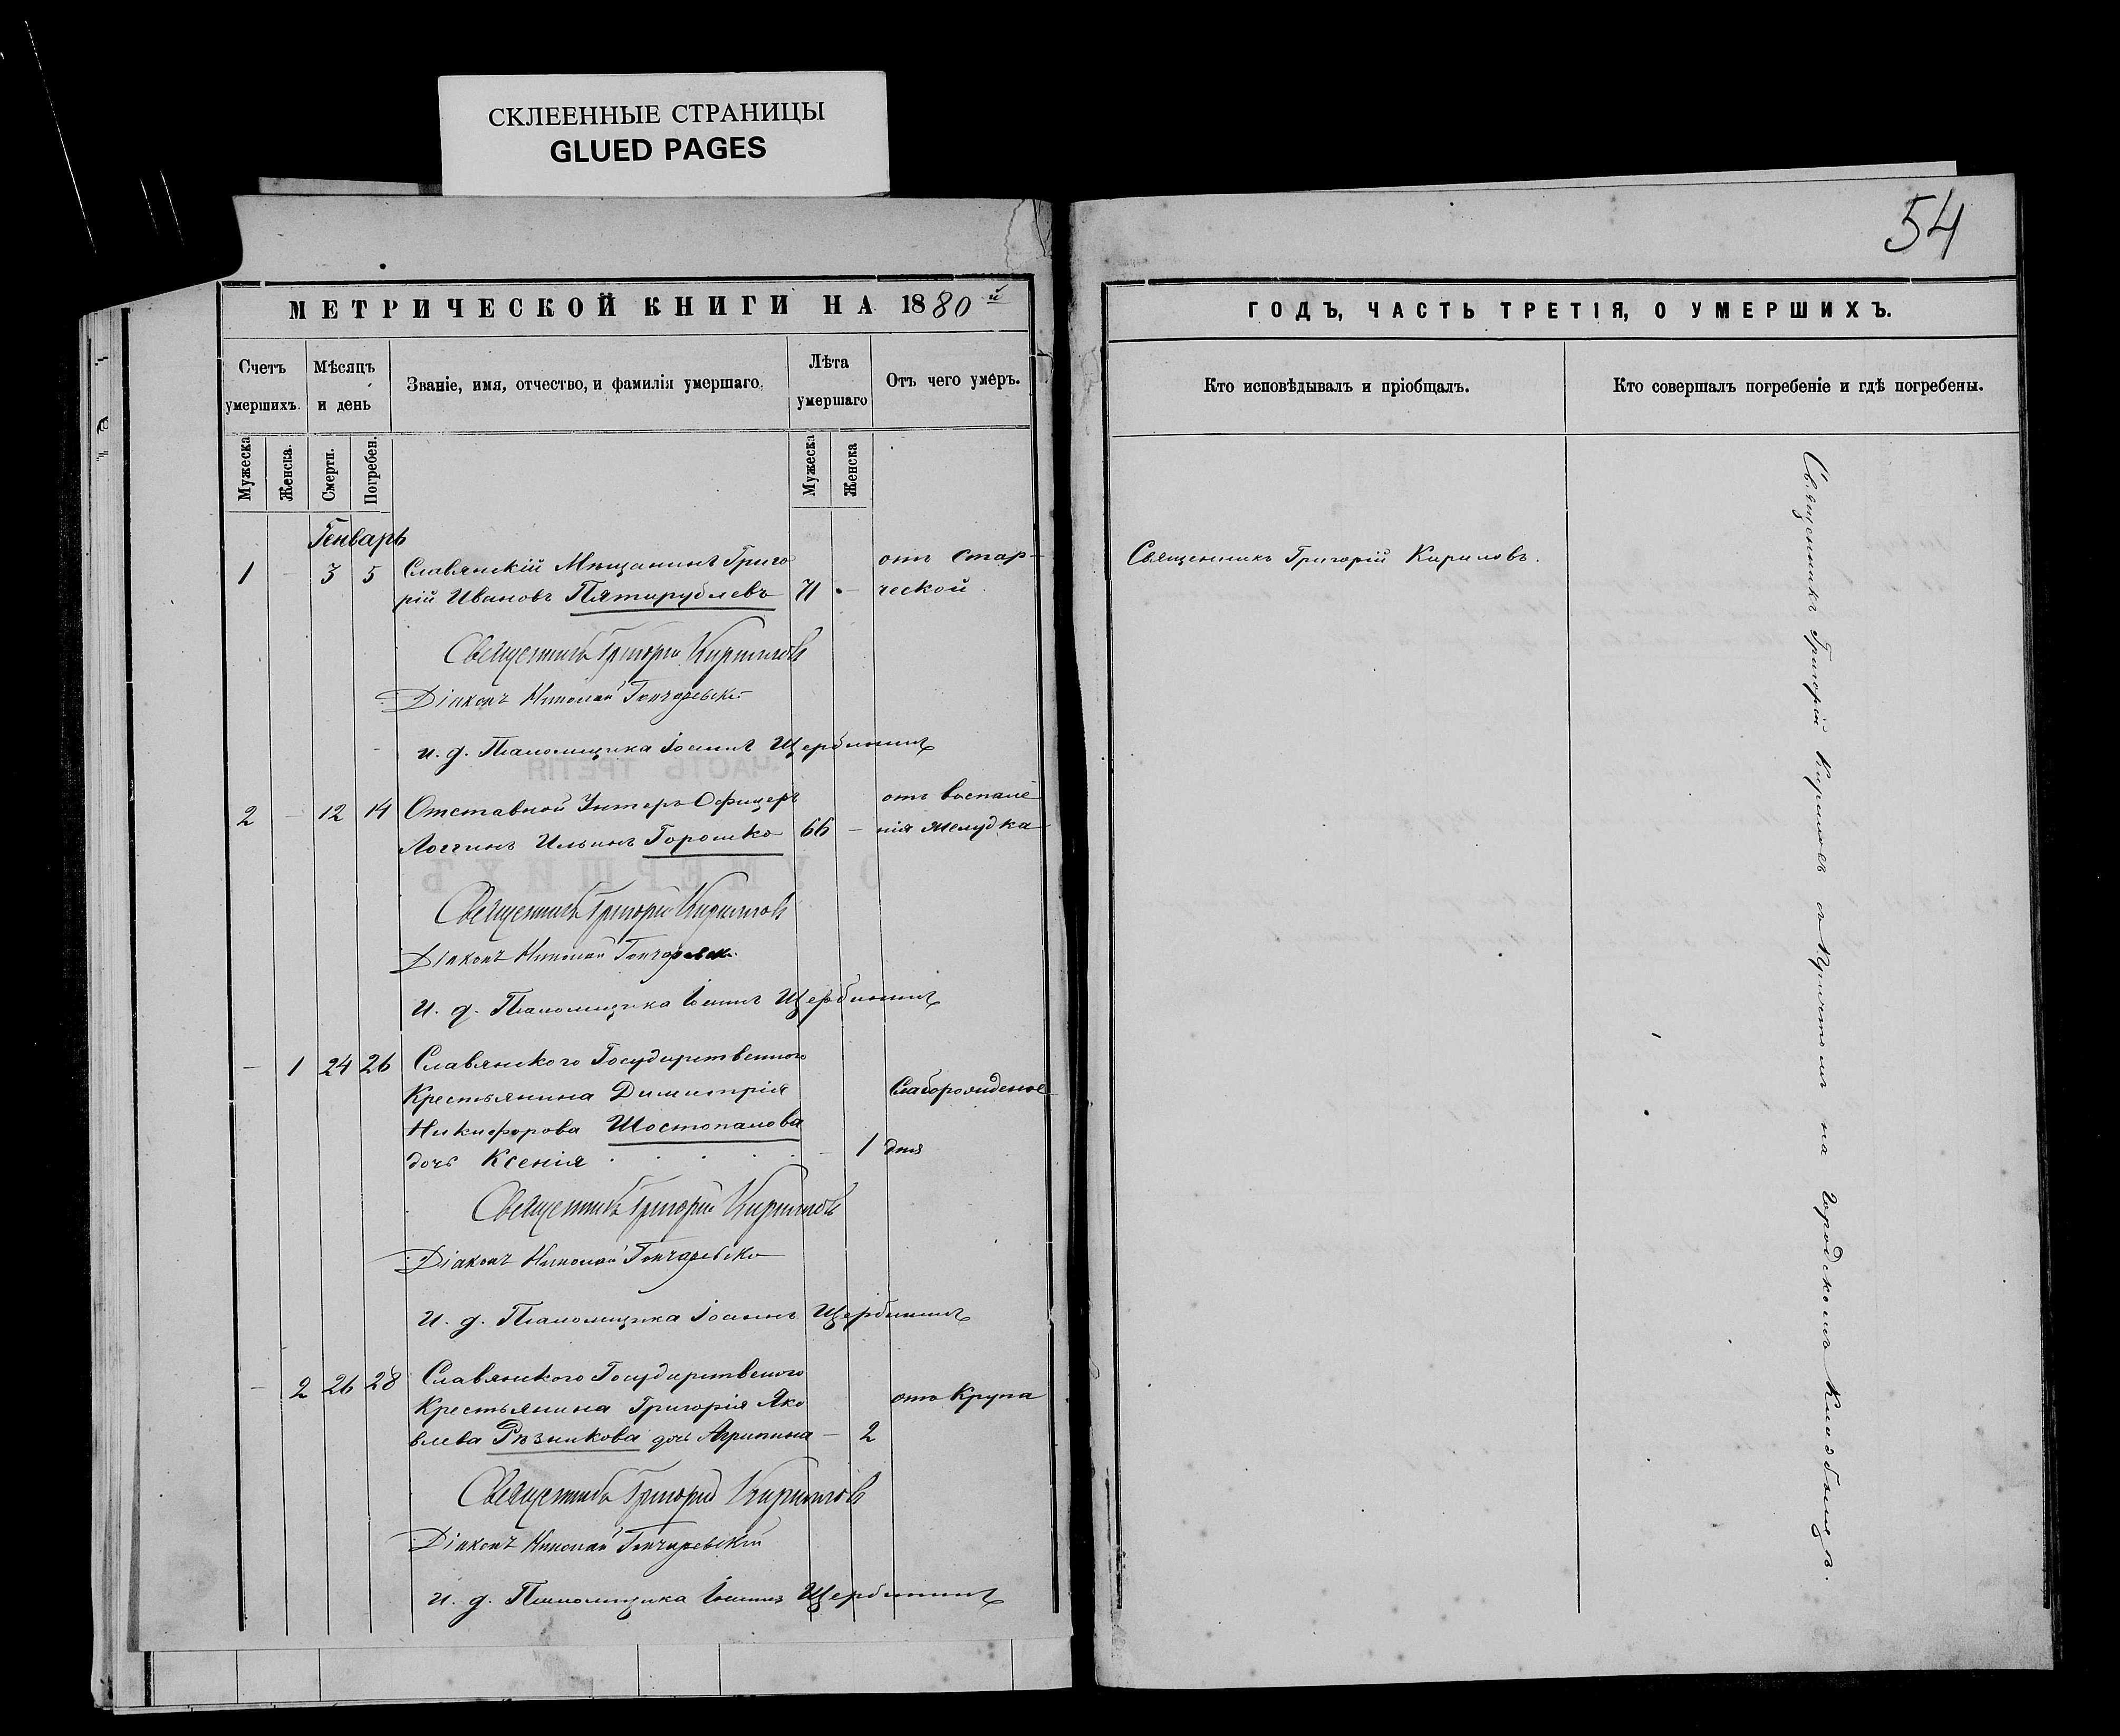 СКЛЕЕННЫЕ СТРАНИЦЫ
GLUED PAGES
54
МЕТРИЧЕСКОЙ КНИГИ НА 1880й
Счетъ умершихъ.
Мѣсяцъ и день
Званіе, имя, отчество, и фамилія умершаго.
Лѣта умершаго
Отъ чего умеръ.
Мужеска
Женска.
Смерти.
Погребен.
Мужеска
Женска
Генварь
1 - 3 5 Славянскій Мѣщанинъ Григо отъ стар-
рій Ивановъ Пятирублевъ 71 - ческой
Священникъ Григорій Кириловъ
Діаконъ Николай Гончаревскій
и. д. Псаломщика Іоаннъ Щербининъ
2 - 12 14 Отставной Унтеръ Офицеръ отъ воспале
Логгинъ Ильинъ Горошко 66 - нія желудка
Священникъ Григорій Кириловъ
Діаконъ Николай Гончаревск.
И. д. Псаломщика Іоаннъ Щербининъ
- 1 24 26 Славянского Государственного
Крестьянина Димитрія Слаборожденіе
Никифорова Шостопалова
дочь Ксенія - 1 дня
Священникъ Григорій Кириловъ
Діаконъ Николай Гончаревскій
И. д. Псаломщика Іоаннъ Щербининъ
- 2 26 28 Славянского Государственого
Крестьянина Григорія Яко отъ Крупа
влева Рѣзникова дочь Агрипина - 2
Священникъ Григорій Кириловъ
Діаконъ Николай Гончаревскій
и. д. Псаломщика Іоаннъ Щербининъ
ГОДЪ, ЧАСТЬ ТРЕТІЯ, О УМЕРШИХЪ.
Кто исповѣдывалъ и пріобщалъ.
Кто совершалъ погребеніе и гдѣ погребены.
Священникъ Григорій Кириловъ.
Священникъ Григорій Кириловъ съ Причтомъ на Городскомъ Кладбищѣ.